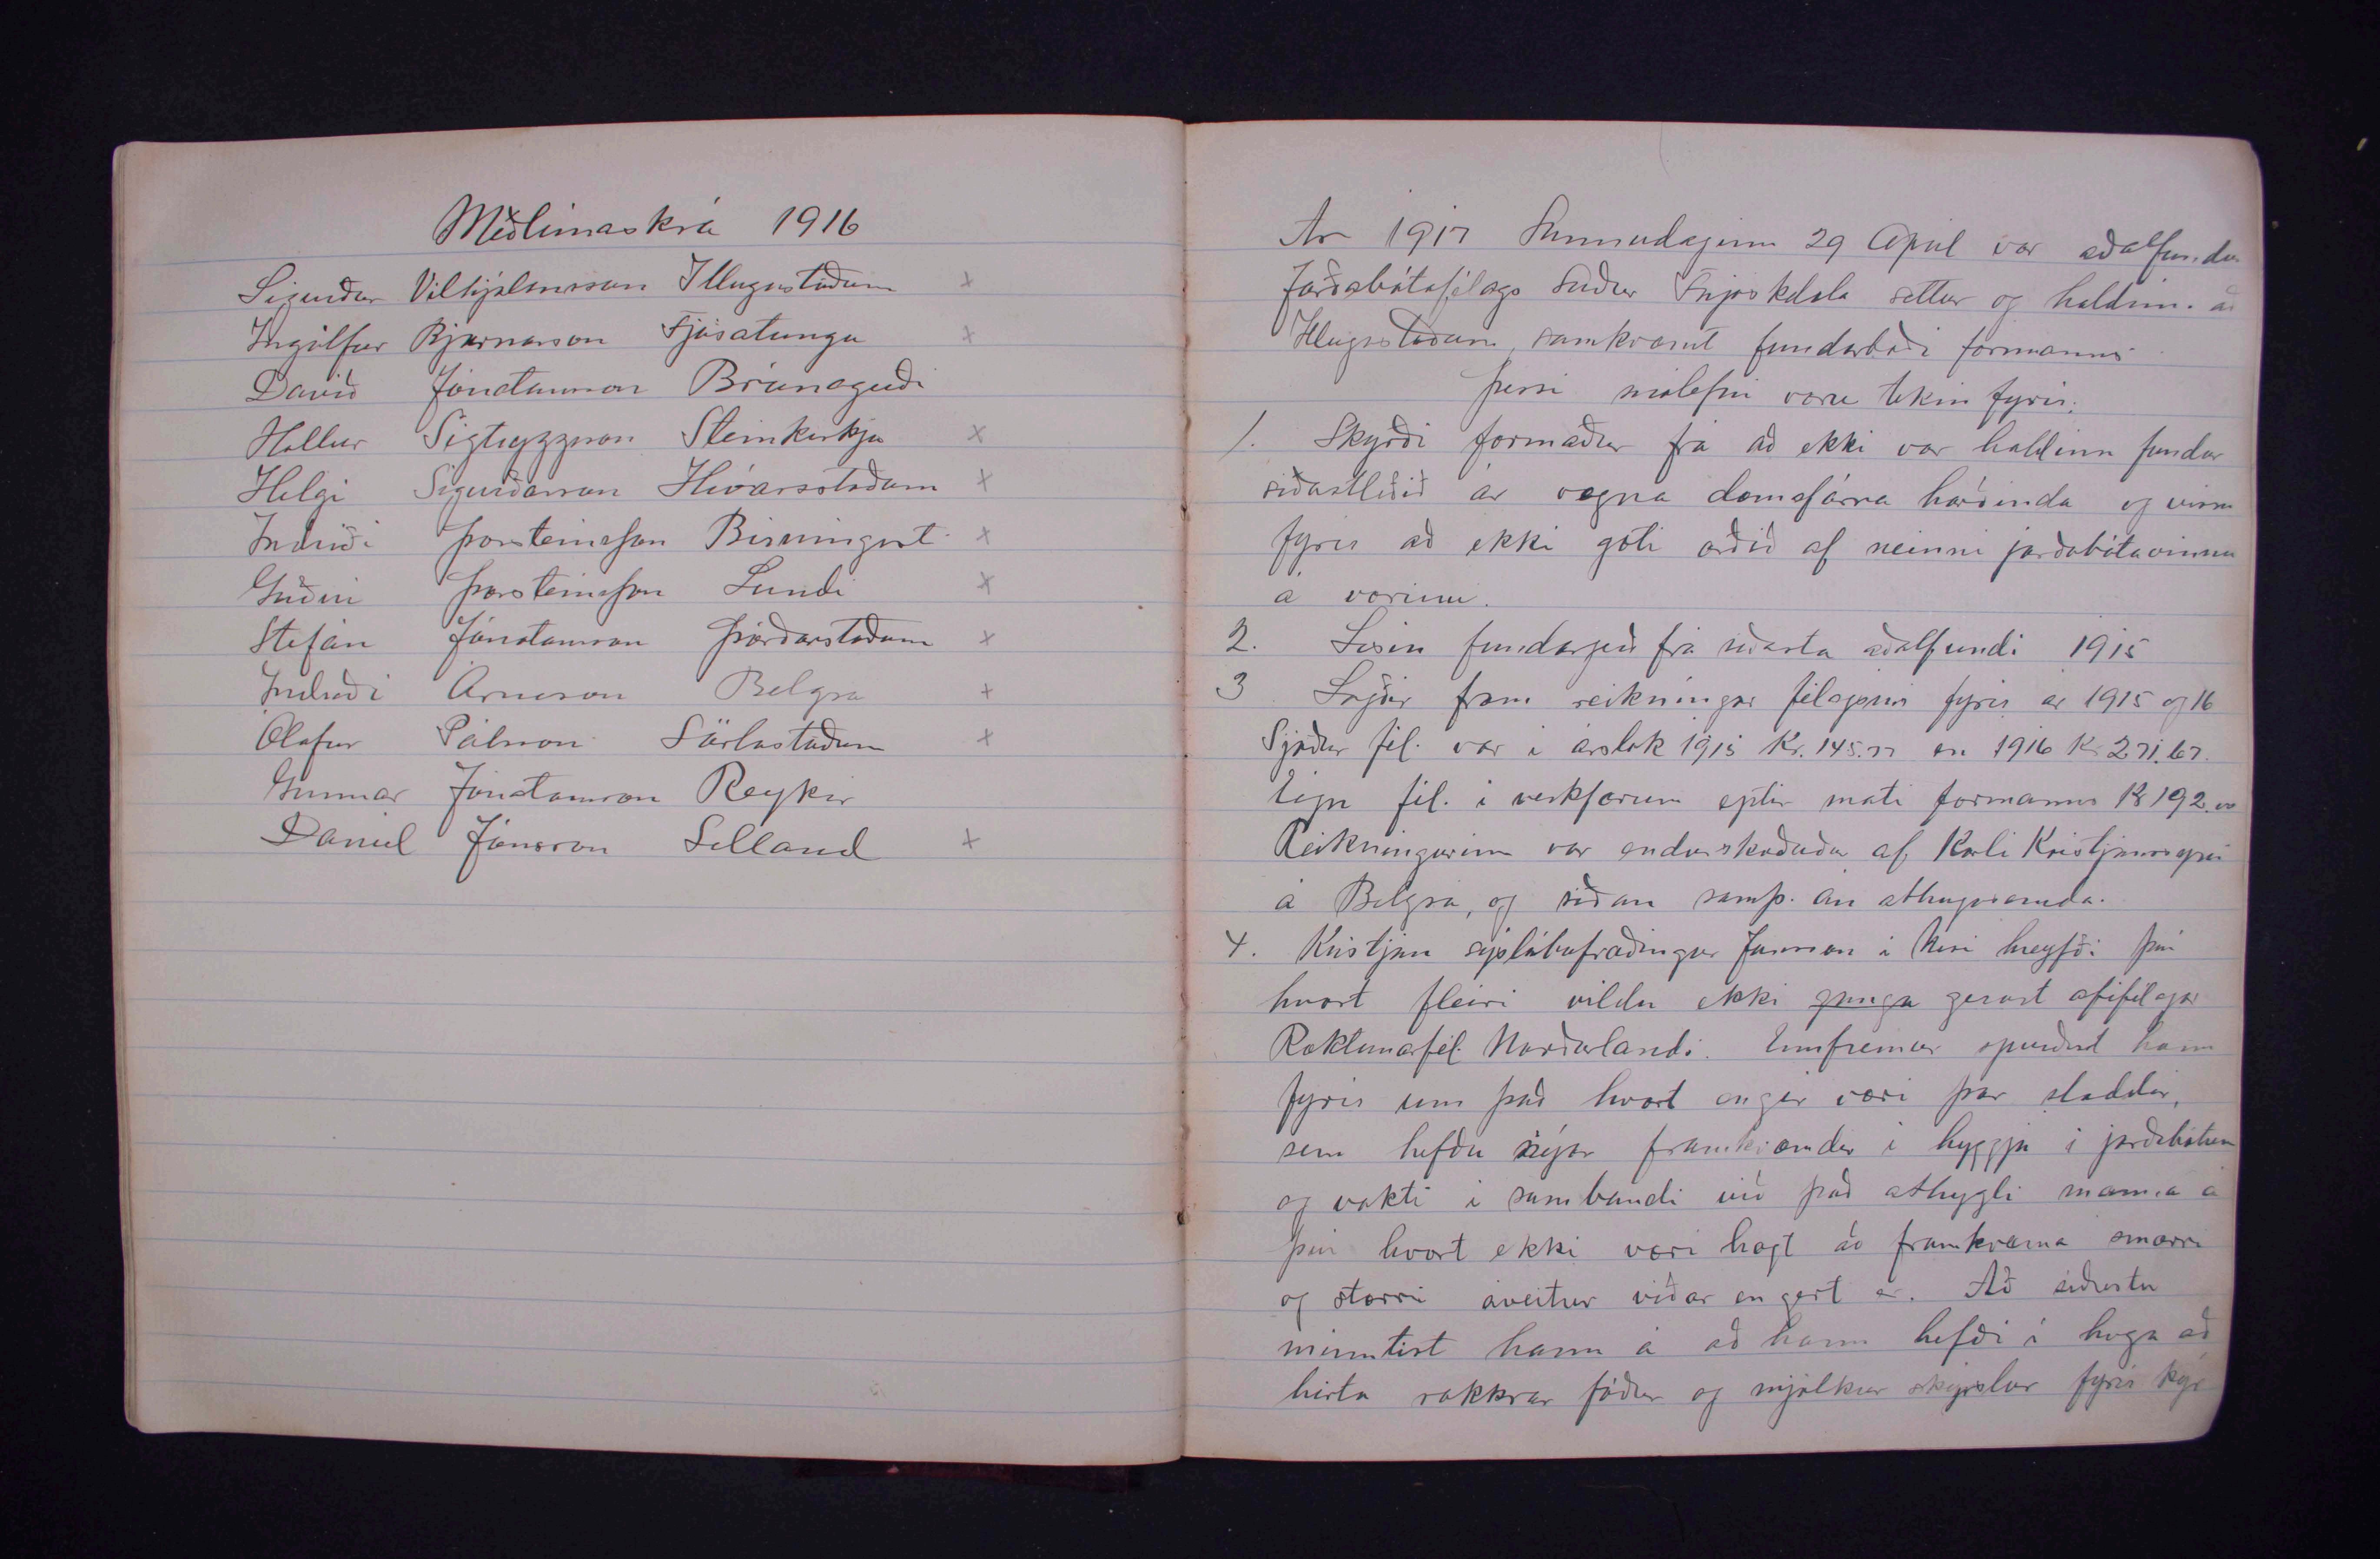 Meðlimaskrá 1916
Sigurður Vilhjálmsson Illugastöðum x
Ingólfur Bjarnarson Fjósatungu x
Davíð Jónatansson Brúnagerði
Hallur Sigtryggsson Steinkirkju x
Helgi Sigurðsson Hróarsstöðum x
Indriði Þorsteinsson Birningsst. x
Guðni Þorsteinsson Lundi x
Stefán Jónatansson Þórðarstöðum x
Indriði Árnason Belgsá x
Ólafur Pálsson Sörlastöðum x
Gunnar Jónatansson Reykir
Daníel Jónsson Selland x
Ár 1917 Sunnudaginn 29 Apríl var aðalfundur
Jarðabótafélags Suður Fnjóskdæla settur og haldinn að
Illugastöðum, samkvæmt fundarboði formanns
Þessi málefni voru tekin fyrir:
1. Skýrði formaður frá að ekki var haldinn fundur
síðastliðið ár vegna dæmafárra harðinda og vissu
fyrir að ekki gæti orðið af neinni jarðabótavinnu
á vorinu.
2. Lesin fundargerð frá síðasta aðalfundi 1915
3 Lagðir fram reikningar félagsins fyrir ár 1915 og 16
Sjóður fél. var í árslok 1915 Kr. 145.77 en 1916 Kr 271.67.
Eign fél. í verkfærum eptir mati formanns Kr 192.00
Reikningurinn var endurskoðaður af Karli Kristjánssyni
á Belgsá, og síðan samþ. án athugasemda.
4. Kristján sýslubúfræðingur Jónsson í Nesi hreyfði því
hvort fleiri vildu ekki ganga gerast æfifélagar
Ræktunarfél. Norðurlands. Ennfremur spurðist hann
fyrir um það hvort engir væri þar staddir,
sem hefðu nýjar framkvæmdir í hyggju í jarðabótum
og vakti í sambandi við það athygli manna á
því hvort ekki væri hægt að framkvæma smærri
og stærri áveitur víðar en gert er. Að síðustu
minntist hann á að hann hefði í huga að
hirta nokkrar fóður og mjólkur skýrslur fyrir kýr